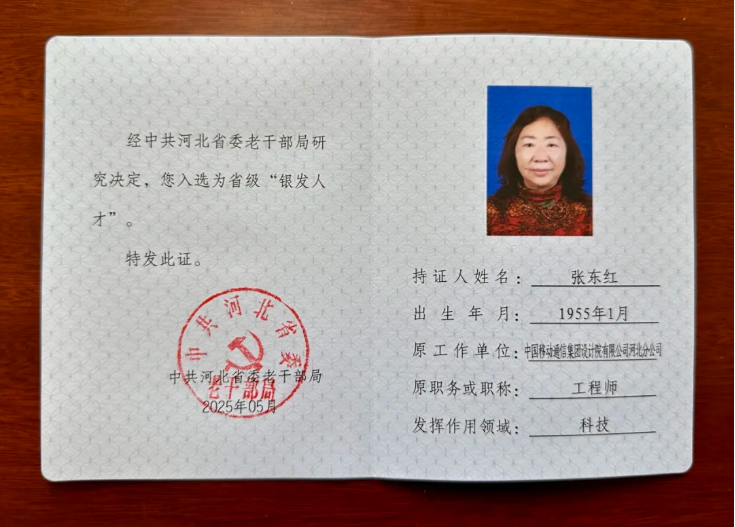 经中共河北省委老干部局研
究决定，您入选为省级“银发人
才”。
特发此证。
中共河北省委
老干部局
中共河北省委老干部局
2025年05月
持证人姓名：张东红
出生年月：1955年1月
原工作单位：中国移动通信集团设计院有限公司河北分公司
原职务或职称：工程师
发挥作用领域：科技